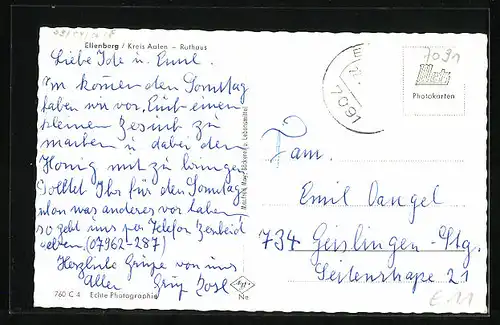 Ellenberg / Kreis Aalen – Rathaus
Liebe Ide u. Emil.
Am kommenden Sonntag
haben wir vor, Euch einen
kleinen Besuch zu
machen u dabei den
Honig mit zu bringen
Solltet Ihr für den Sonntag
schon was anderes vor haben,
so gebt uns per Telefon Bescheid
(07962-287)
Herzliche Grüße von uns
Allen
760 C 4 Echte Photographie
Agfa
Ne
7091
7091
Photokarten
Fam.
Emil Dangel
734 Geislingen-Stg.
Seidenstrape 21
E 11